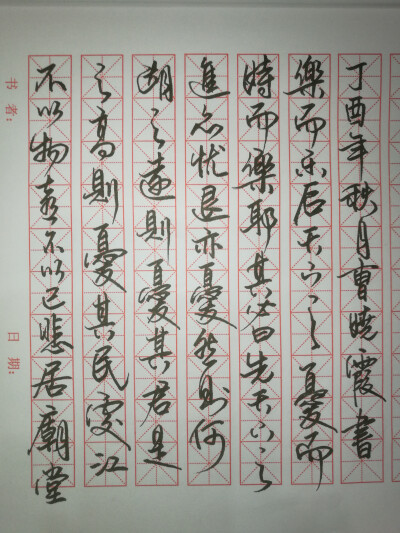 不以物喜不以己悲居廟堂
之高則憂其民處江
湖之遠則憂其君是
進亦忧退亦憂然则何
時而樂耶其必曰先天下之
樂而乐后天下之憂而
丁酉年秋月曹晓霞書
书者：
日期：